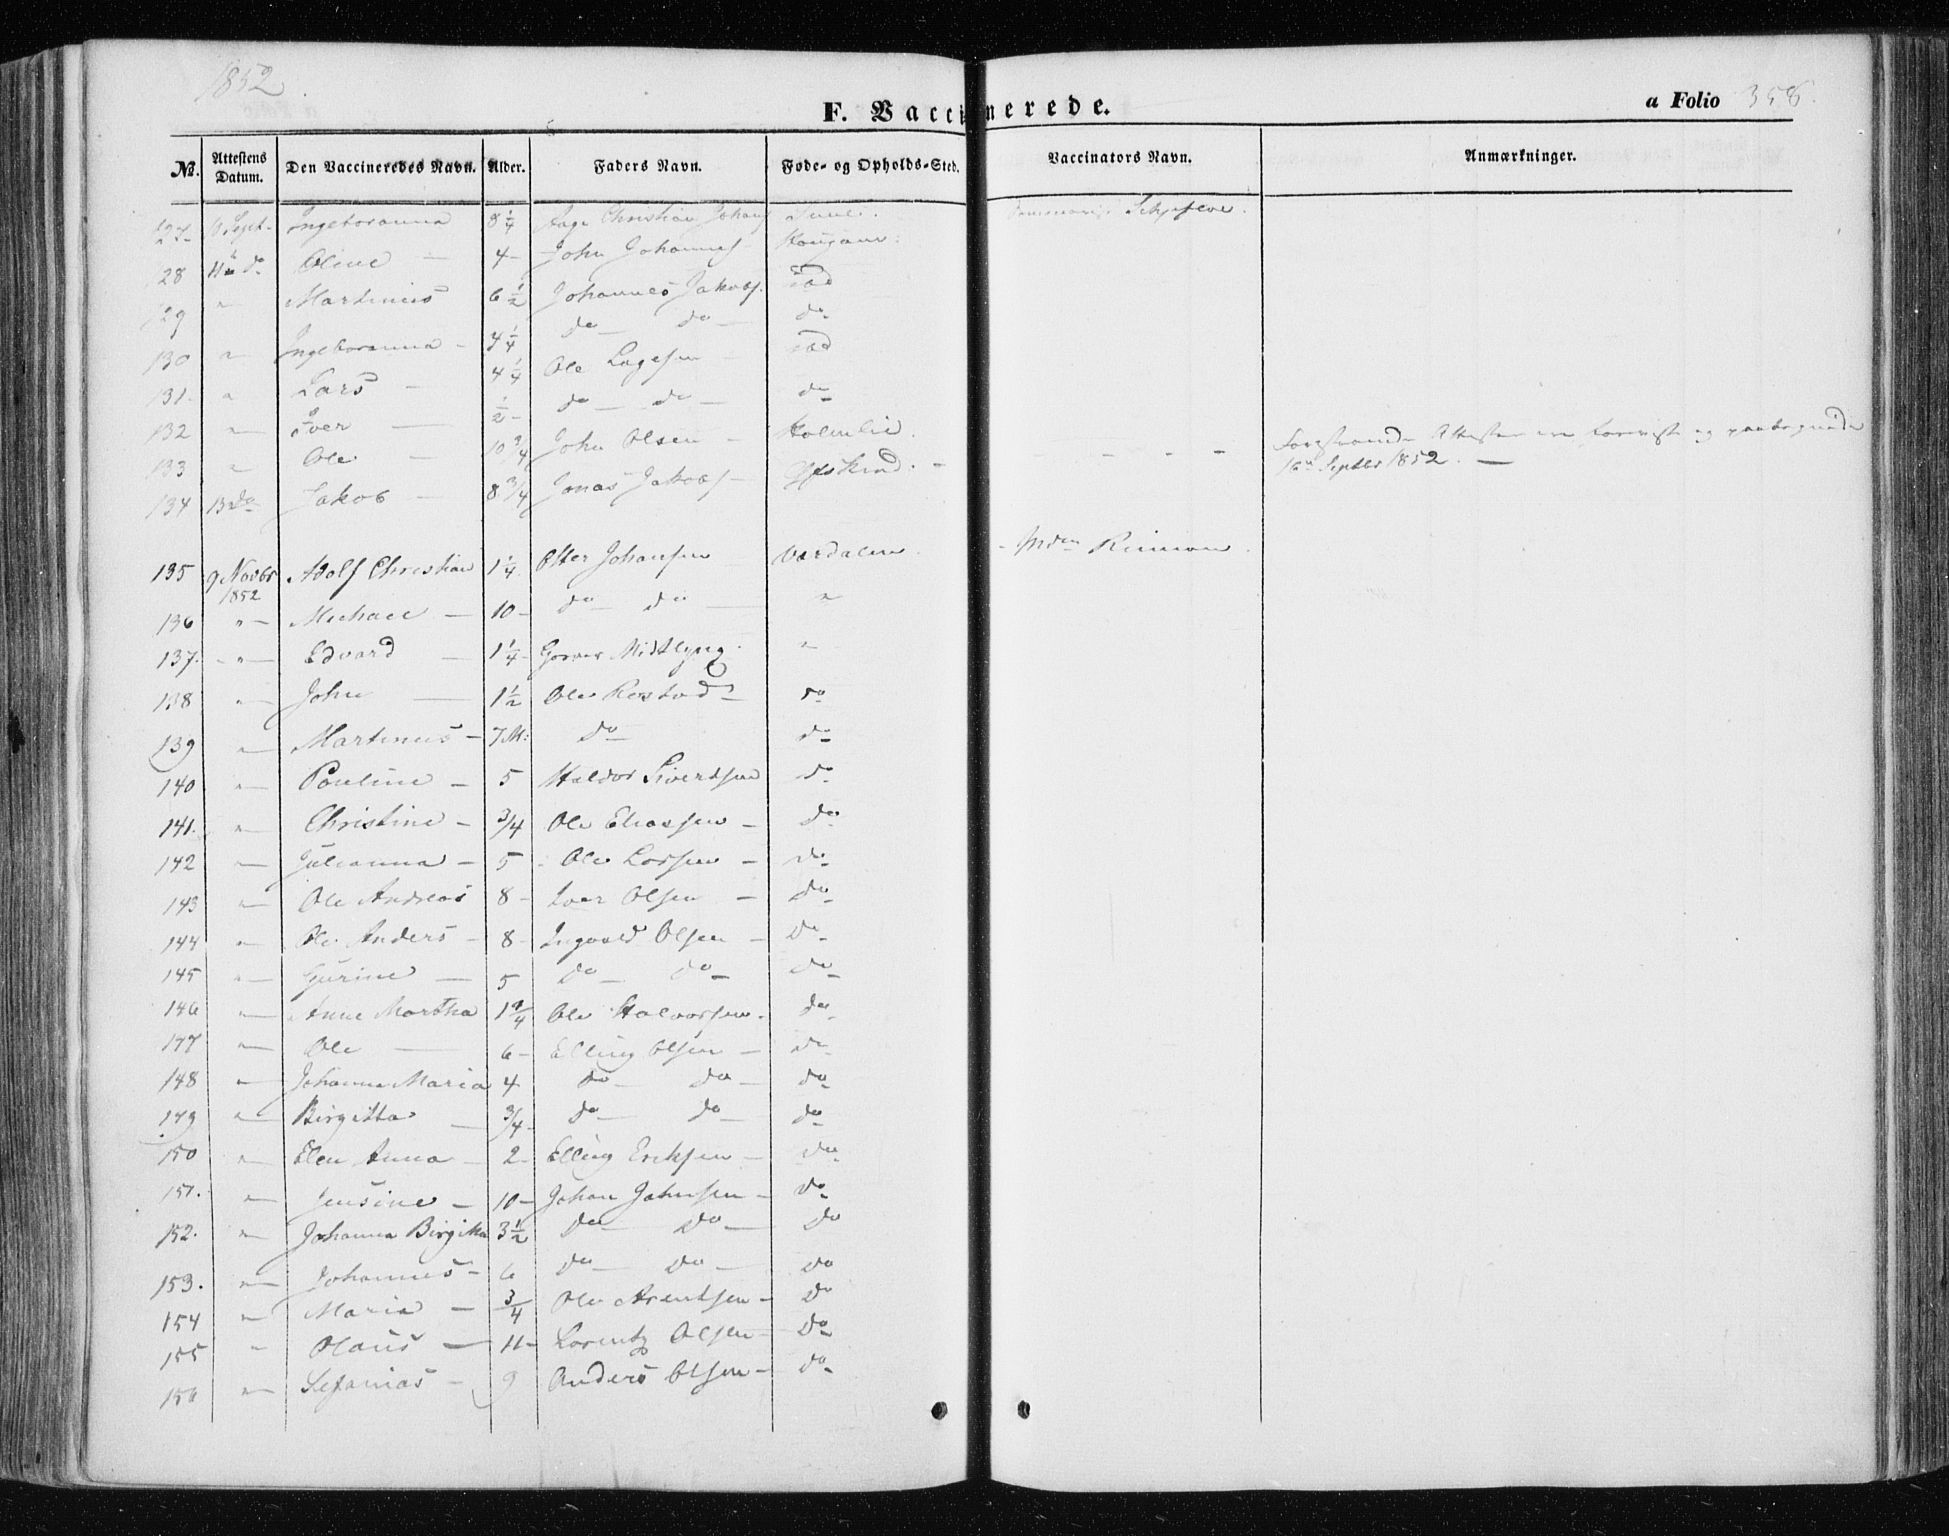 1852
F. Vaccinerede.
a Folio 358.
No. Attestens Datum. Den Vaccineredes Navn. Alder. Faders Navn. Føde- og Opholds-Sted. Vaccinators Navn. Anmærkninger.
127 Sept. Ingeboranna 8 1/4 Christian
28 Oline — 4 - John Johannes
129 " Martinus 6 1/2 Johannes Jakobs.
130 " Ingeboranna - 4 1/4 do — do — do
131 " Lars — 4 1/4 Ole
132 " Iver — 1/2 - do — do — do
133 " Ole — 10 3/4 John Olsen — Holmlie. - - - Attester og
134 13 do Jakob — 8 3/4 Jonas Jakobs - 16de Septbr 1852. —
135 9 Novbr 1852 Adolf Christian 1 1/4 Otter Johansen Værdalen.
136 " — Michael — 10 - do do — "
137. - " — Edvard — 1 1/4 - Midtlyng. "
138 " — John — 1 1/2 Ole Rostad - do
139 " — Martinus - 7 M: do — do
140 " — Pauline — 5 Haldor Sivertsen do
141. " — Christine — 3/4 Ole Eliassen — do
142 " — Julianna — 5 Ole Larsen — do
143 " — Ole Andreas 8 - Iver Olsen — do
144 " — Ole Anders — 8 - Ingvald Olsen — do
145 " — Gurine — 5 do — do — do
146 " — Anne Martha 1 Ole Halvorsen. do
147 " — Ole — 6 - Elling Olsen — do
148 " — Johanna Maria 4 do — do — do
149 " — Birgitta — 3/4 - do — do — do
150 " — Elen Anna — 2 - Elling Eriksen — do
151. " — Jensine — 10 - Johan Johnsen - do
152. " — Johanna Birgitta 3 1/2 do — do — do
153. " — Johannes - 6 do — do — do
154 " — Maria — 3/4 Ole Arentsen - do
155 " Olaus — 11 - Lorentz Olsen - do
156 " — Sefanias — 9 Anders Olsen - do